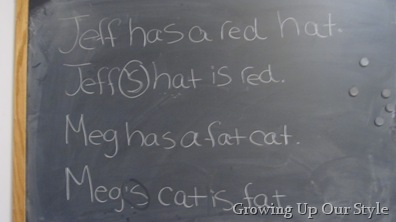 Jeff has a red hat.
Jeff's hat is red.
Meg has a fat cat.
Meg's cat is fat
Growing Up Our Style